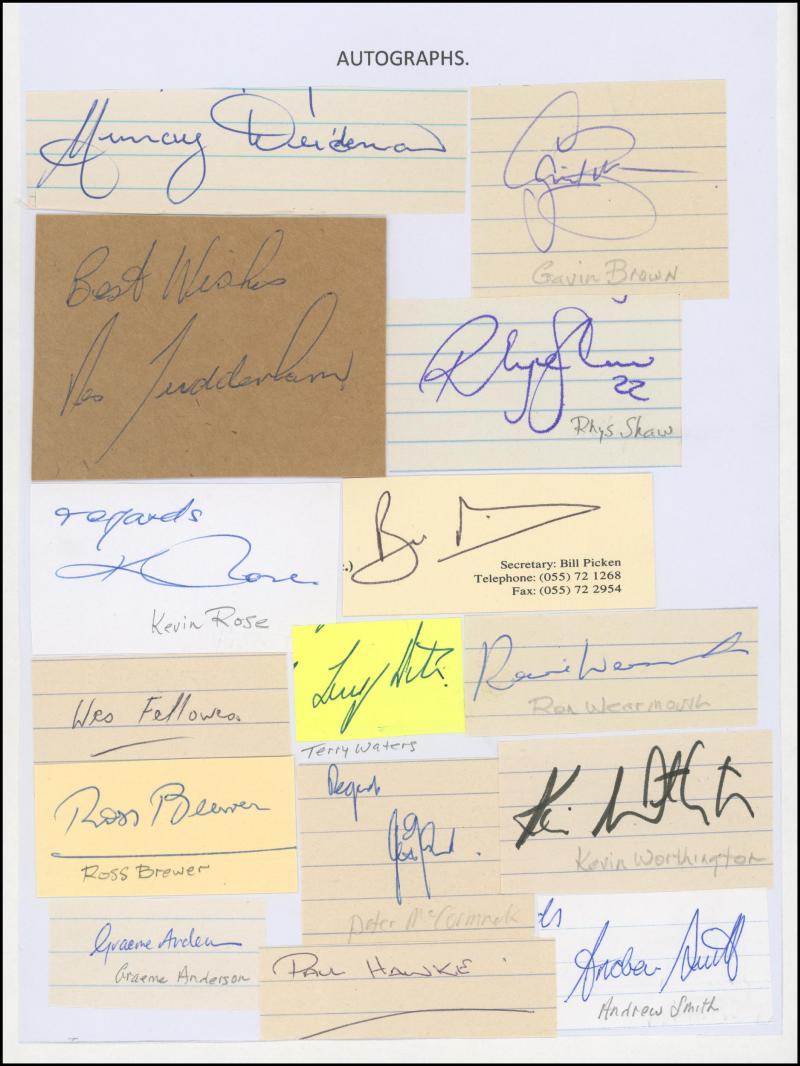 AUTOGRAPHS.
Murray Weideman
Gavin Brown
Best Wishes
Des Tuddenham
Rhys Shaw
22
Rhys Shaw
regards
K Rose
Kevin Rose
Secretary: Bill Picken
Telephone: (055) 72 1268
Fax: (055) 72 2954
Wes Fellowes
Terry Waters
Terry Waters
Ron Wearmouth
Ross Brewer
Ross Brewer
Regards
Peter McCormack
Kevin Worthington
Kevin Worthington
Graeme Anderson
Graeme Anderson
Paul Hawke
Andrew Smith
Andrew Smith